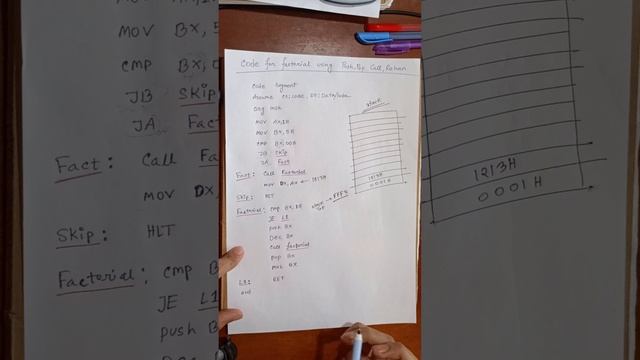 Code for factorial using Push, Pop, Call, Return
Code Segment
Assume CS: CODE, DS: Data/Code
Org
MOV AX, 1H
MOV BX, 5H
CMP BX, 00H
JB Skip
JA Fact
Fact: Call Factorial
MOV DX, AX ← 1213H
Skip: HLT
Factorial: CMP BX, 1H
JE L1
push BX
Dec BX
Call factorial
pop BX
MUL BX
L1: RET
end
stack
1213H
0001H
stack top → FFFE
MOV BX, 5
CMP BX, 0
JB Skip
JA Fact
Fact: Call Fa
MOV DX,
Skip: HLT
Factorial: CMP B
JE L1
push B
1213H
0001H